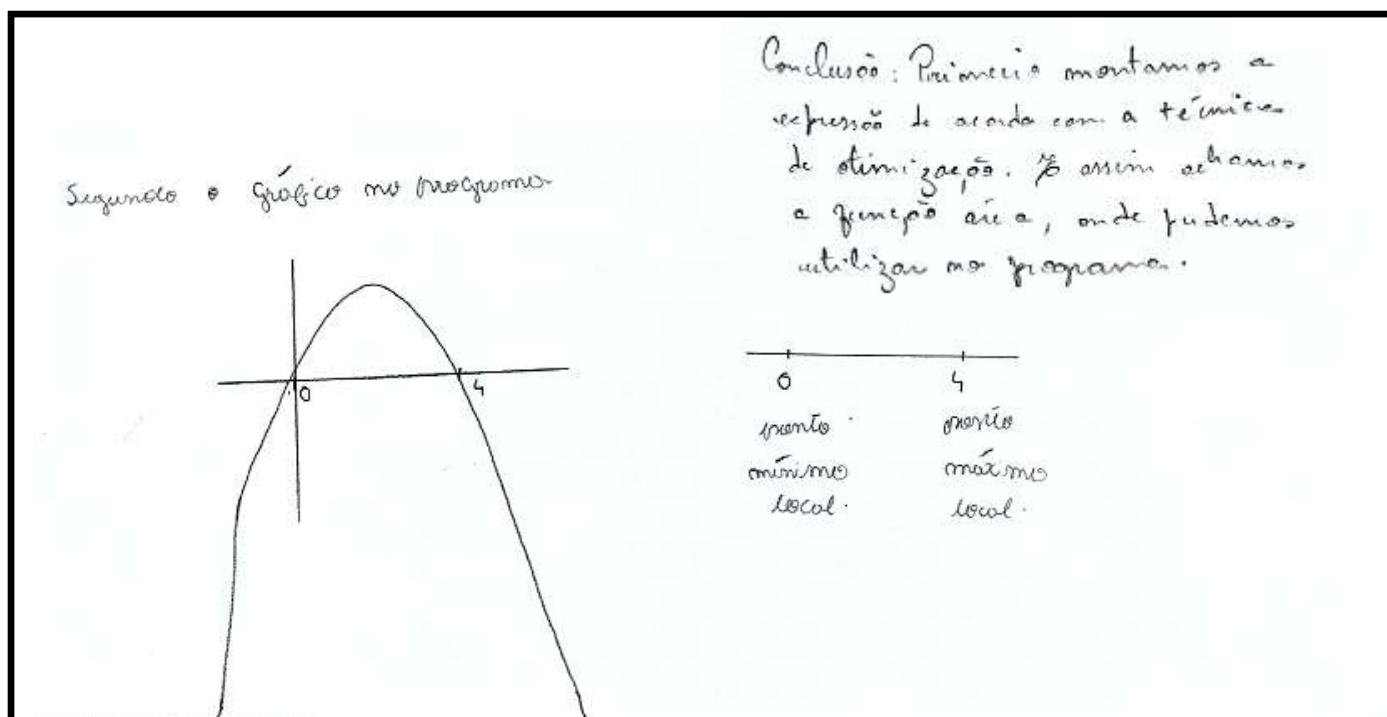 Segundo o gráfico no programa
0
4
Conclusão: Primeiro montamos a
expressão de acordo com a técnica
de otimização. E assim achamos
a função área, onde pudemos
utilizar no programa.
0 4
ponto ponto
mínimo máximo
local. local.